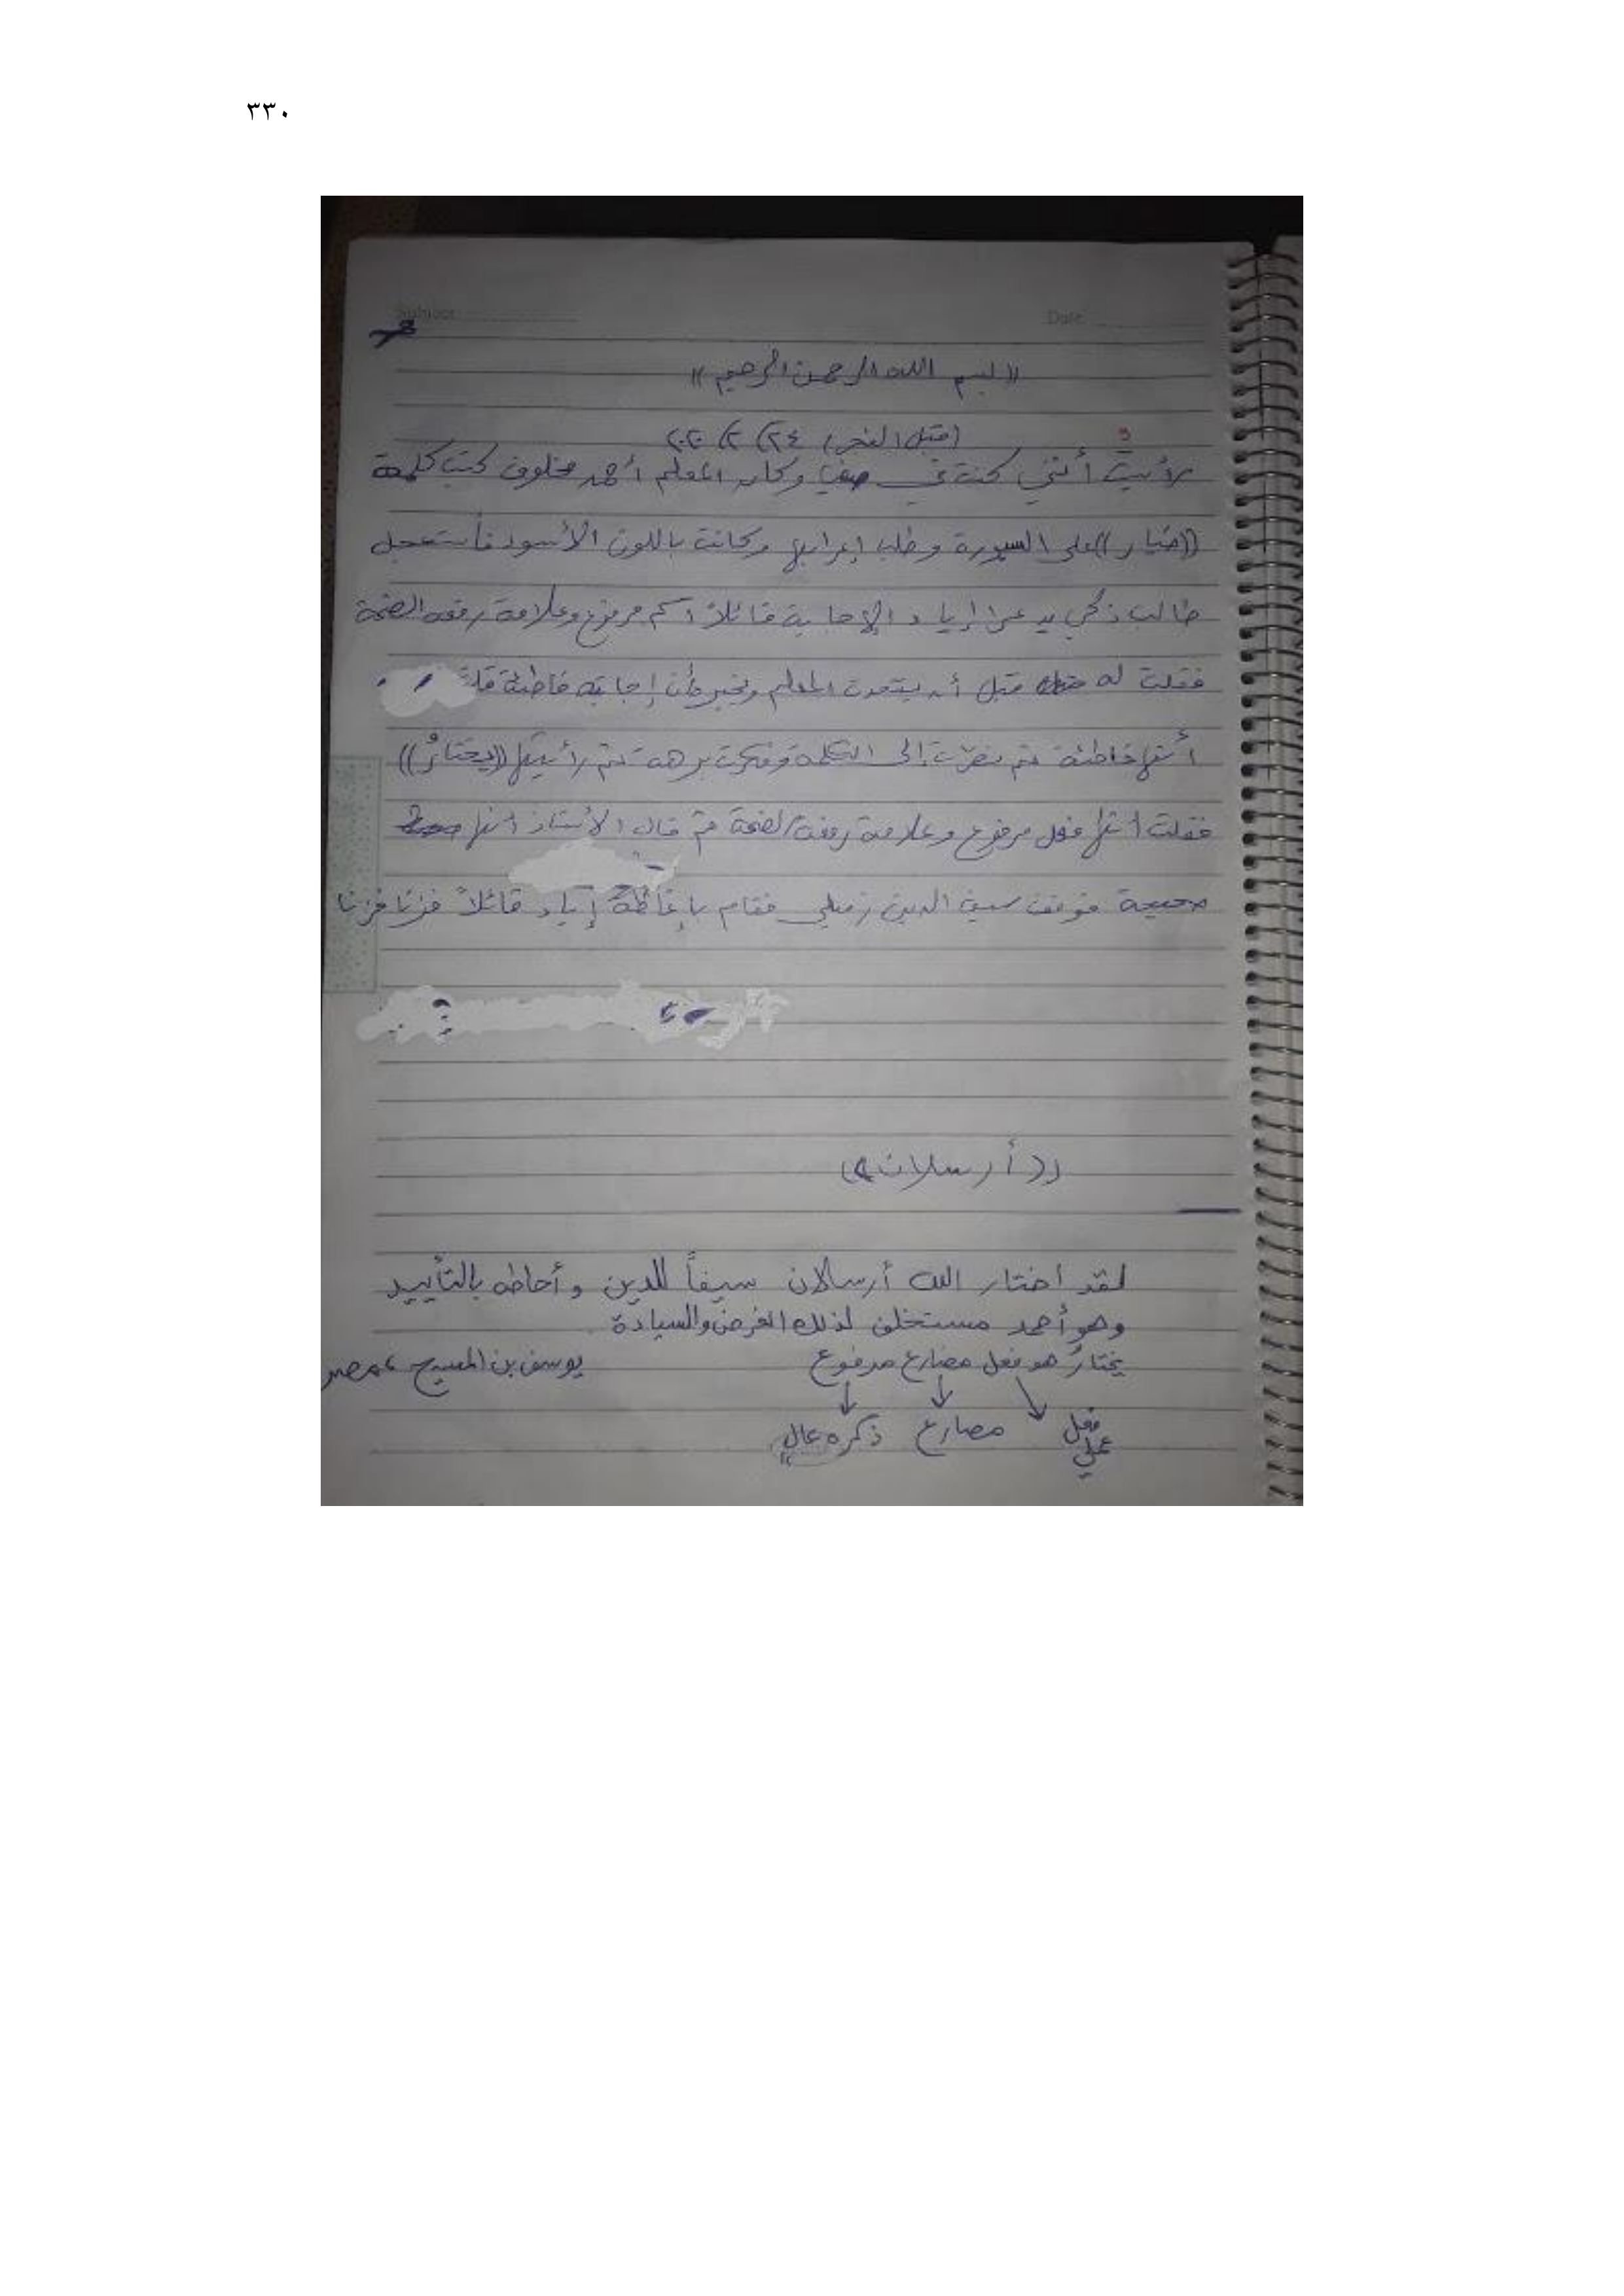 ٣٣٠
Subject
Date
((بسم الله الرحمن الرحيم))
(قبل الفجر) ٢٤/٢/٢٠٢٠
رأيت أنني كنت في صفي وكان المعلم أحمد مخلوف كتب كلمة
((ختيار)) على السبورة وطلب إعرابها وكانت باللون الأسود فأستعجل
طالب ذكي يدعى إياد الإجابة قائلاً اسم مرفوع وعلامة رفعه الضمة
فقلت له قبل أن يتحدث المعلم ويخبره أن إجابته خاطئة قلت
أنها خاطئة ثم نظرت إلى الكلمة وفكرت برهة ثم رأيتها ((يختارُ))
فقلت انها فعل مرفوع وعلامة رفعه الضمة ثم قال الأستاذ انها
صحيحة فوقف سيف الدين زميلي فقام بإغاظة إياد قائلاً فزنا فزنا
((أرسلان))
لقد اختار الله أرسلان سيفاً للدين وأحاطه بالتأييد
وهو أحمد مستخلف لذلك الغرض والسيادة
يختارُ هو فعل مضارع مرفوع
يوسف بن المسيح، مصر
فعل عملي
مصارع
ذكره عالٍ